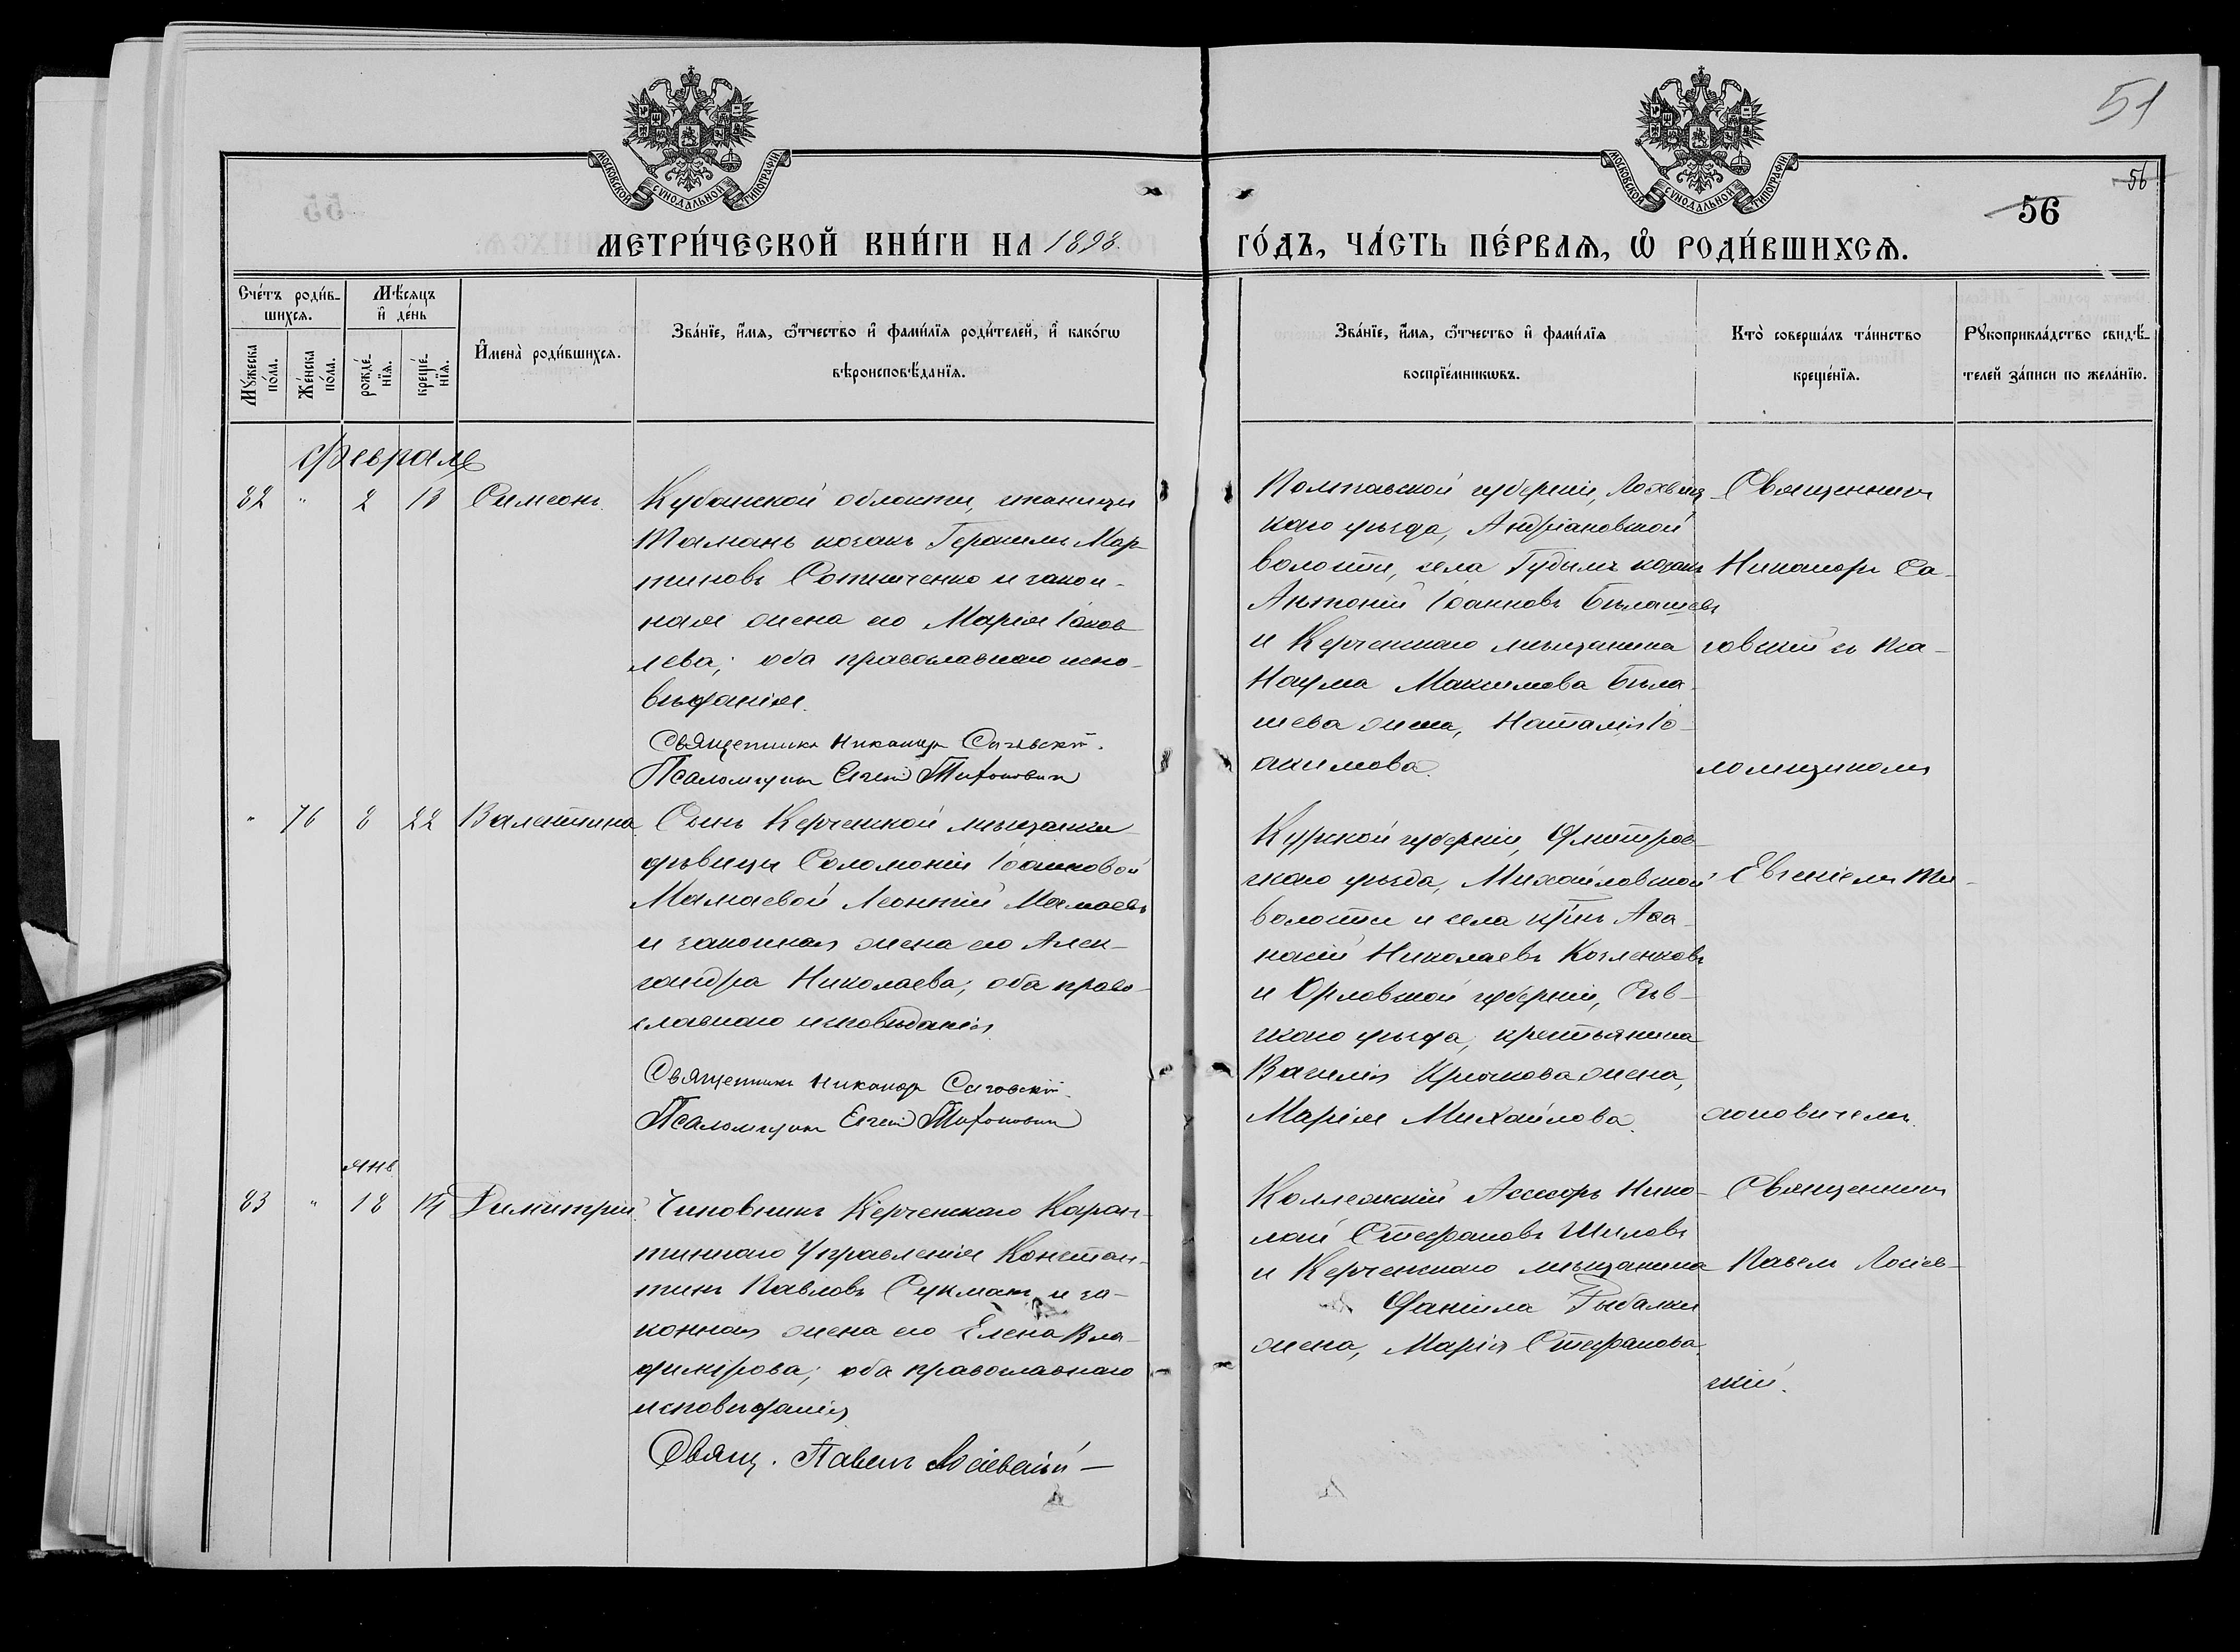 51
56
56
МОСКОВСКОЙ СѴНОДАЛЬНОЙ ТИПОГРАФІИ
МОСКОВСКОЙ СѴНОДАЛЬНОЙ ТИПОГРАФІИ
МЕТРИ́ЧЕСКОЙ КНИ́ГИ НА 1898. ГО́ДЪ, ЧА́СТЬ ПЕ́РВАЯ, Ѡ РОДИ́ВШИХСЯ.
Сче́тъ роди́в-
шихся.
Мꙋ́жеска по́ла.
Же́нска по́ла.
Мѣ́сяцъ и҆ де́нь
рожде́-нїя.
креще́-нїя.
И҆мена̀ роди́вшихся.
Зва́нїе, и҆́мя, ѻ҆́тчество и҆ фами́лїя роди́телей, и҆ како́гѡ
вѣроисповѣ́данїя.
Зва́нїе, и҆́мя, ѻ҆́тчество и҆ фами́лїя
воспрїе́мникѡвъ.
Кто̀ соверша́лъ та́инство
креще́нїя.
Рꙋкоприкла́дство свидѣ́-
телей за́писи по жела́нїю.
Февраль
82 " 2 13 Симеонъ
Кубанской области, станицы
Тамань козакъ Герасимъ Мар-
тиновъ Сотниченко и закон-
ная жена его Марія Іаков-
лева; оба православнаго испо-
вѣданія.
Священникъ Никаноръ Саговскій.
Псаломщикъ Евгеній Тихоновичъ
Полтавской губерніи, Лохвиц-
каго уѣзда, Андріановской
волости, села Гудимъ козакъ
Антоній Іоанновъ Бѣлашевъ
и Керченскаго мѣщанина
Наума Максимова Бѣла-
шева жена, Наталія Іо-
акимова.
Священникъ
Никаноръ Са-
говскій съ пса-
ломщикомъ
" 76 8 22 Валентина
Сынъ Керченской мѣщанки
дѣвицы Соломоніи Іоанновой
Мамаевой Леонтій Мамаевъ
и законная жена его Алек-
сандра Николаева; оба право-
славнаго исповѣданія.
Священникъ Никаноръ Саговскій.
Псаломщикъ Евгеній Тихоновичъ
Курской губерніи, Дмитров-
скаго уѣзда, Михайловской
волости и села кр-нъ Аѳа-
насій Николаевъ Козленковъ
и Орловской губерніи, Сѣв-
скаго уѣзда, крестьянина
Василія Крюкова жена,
Марія Михайлова.
Евгеніемъ Ти-
хоновичемъ.
янв.
83 " 18 14 Димитрій
Чиновникъ Керченскаго Каран-
тиннаго Управленія Констан-
тинъ Павловъ Сукманъ и за-
конная жена его Елена Вла-
димірова; оба православнаго
исповѣданія.
Свящ. Павелъ Лосіевскій
Коллежскій Ассесоръ Нико-
лай Стефановъ Шиловъ
и Керченскаго мѣщанина
Даніила Рыбалки
жена, Марія Стефанова.
Священникъ
Павелъ Лосіев-
скій.